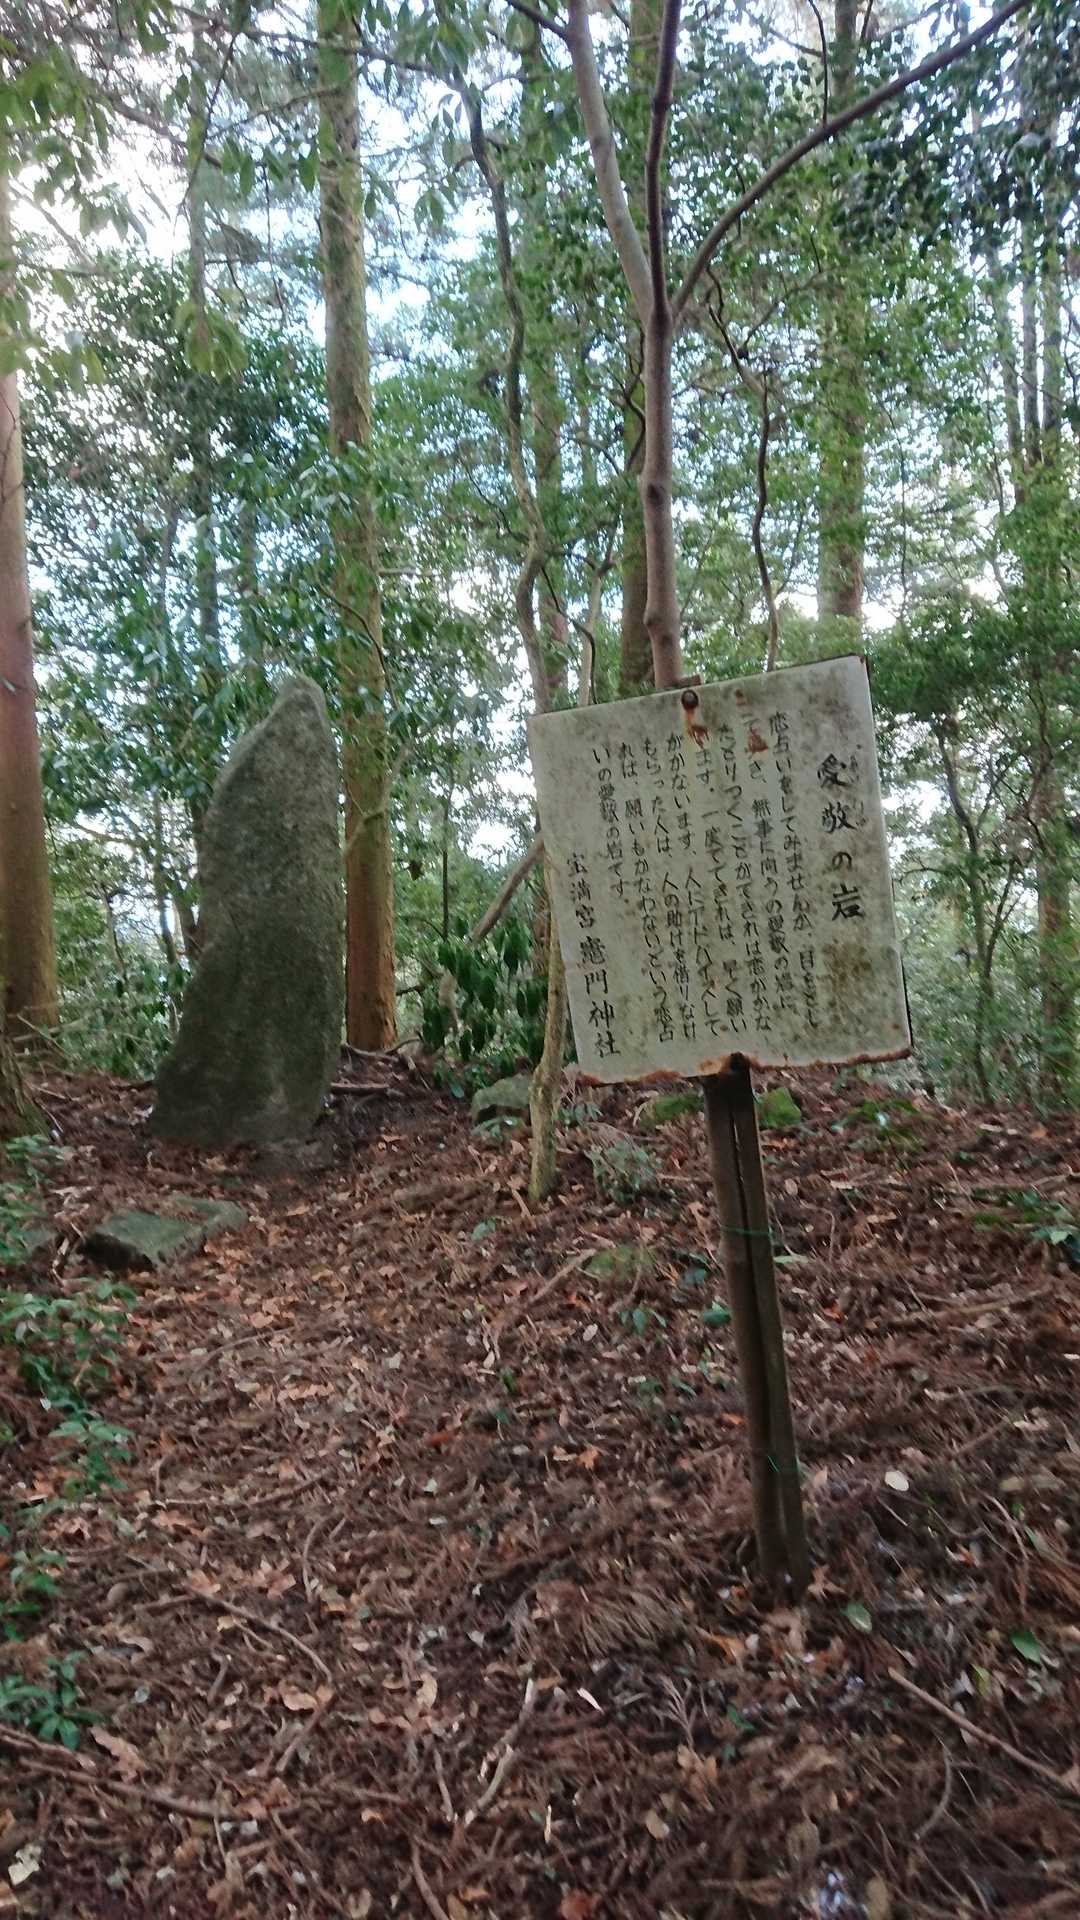 愛敬の岩
恋占いをしてみませんか、目をとじ
て さ、無事に向うの愛敬の岩に
たどりつくことができれば恋がかな
います。一度でできれば、早く願い
がかないます、人にアドバイスして
もらった人は、人の助けを借りなけ
れば、願いもかなわないという恋占
いの愛敬の岩です。
宝満宮竈門神社